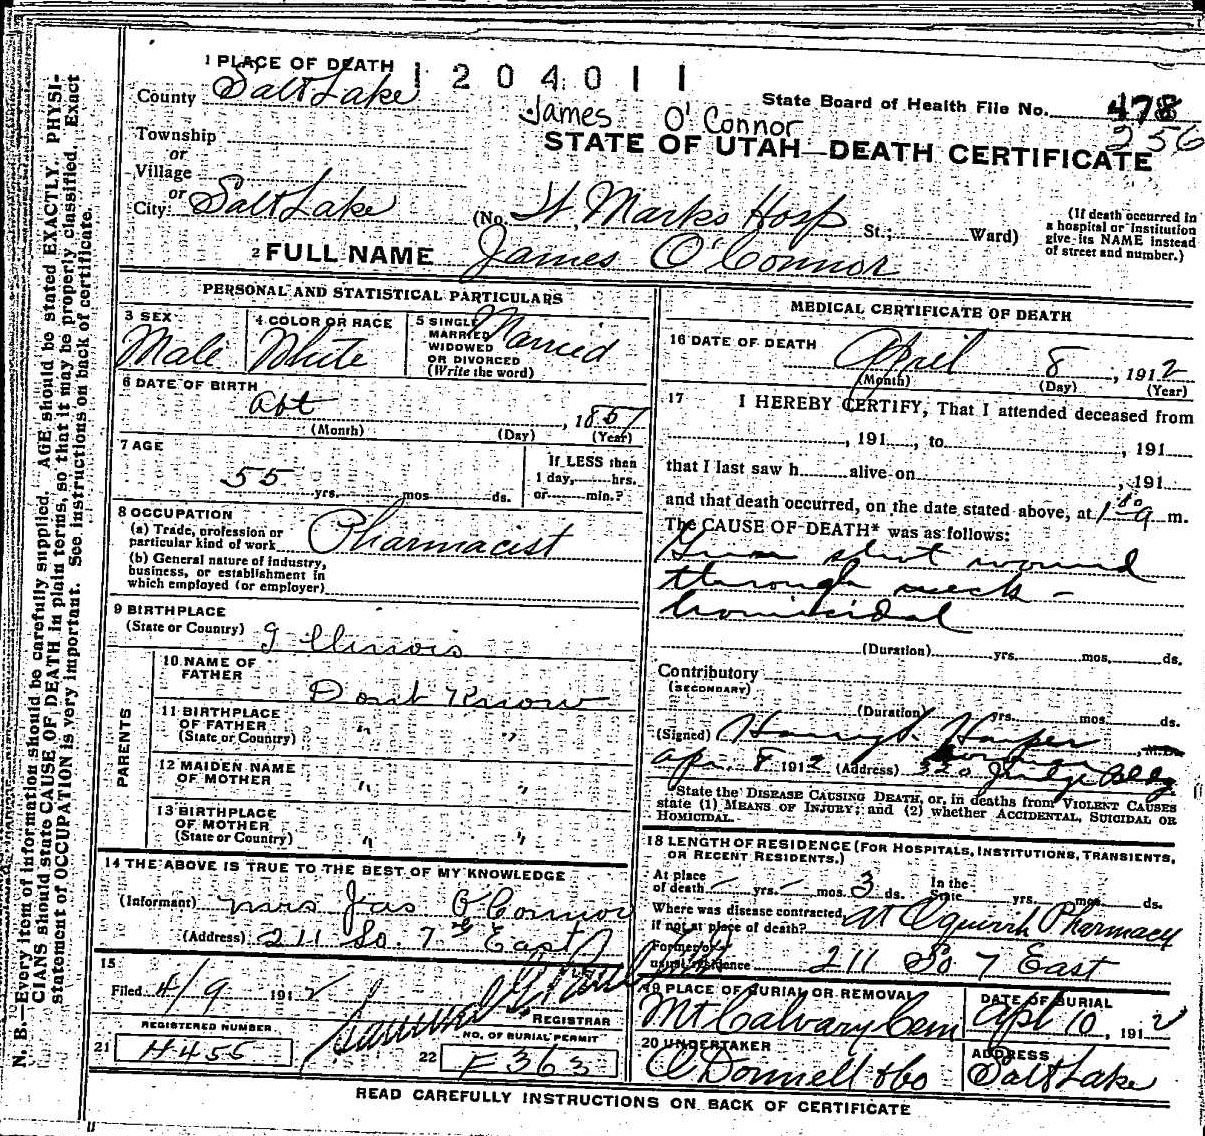 1 PLACE OF DEATH
1204011
County Salt Lake
State Board of Health File No. 478
256
James O'Connor
Township
or
Village
or
City Salt Lake
STATE OF UTAH—DEATH CERTIFICATE
(No. St Marks Hosp St.; Ward)
(If death occurred in
a hospital or institution
give its NAME instead
of street and number.)
2 FULL NAME James O'Connor
PERSONAL AND STATISTICAL PARTICULARS
3 SEX
Male
4 COLOR OR RACE
White
5 SINGLE
MARRIED
WIDOWED
OR DIVORCED
(Write the word)
Married
6 DATE OF BIRTH
abt , 1857
(Month) (Day) (Year)
7 AGE
55 yrs. mos. ds.
If LESS than
1 day, hrs.
or min.?
8 OCCUPATION
(a) Trade, profession or
particular kind of work Pharmacist
(b) General nature of industry,
business, or establishment in
which employed (or employer)
9 BIRTHPLACE
(State or Country) Illinois
PARENTS
10 NAME OF
FATHER Dont Know
11 BIRTHPLACE
OF FATHER
(State or Country) " "
12 MAIDEN NAME
OF MOTHER " "
13 BIRTHPLACE
OF MOTHER
(State or Country) " "
14 THE ABOVE IS TRUE TO THE BEST OF MY KNOWLEDGE
(Informant) Mrs Jas O'Connor
(Address) 211 So. 7th East
15
Filed 4/9 1912
REGISTRAR
REGISTERED NUMBER
21 H455
NO. OF BURIAL PERMIT
22 F363
MEDICAL CERTIFICATE OF DEATH
16 DATE OF DEATH
April 8, 1912
(Month) (Day) (Year)
17 I HEREBY CERTIFY, That I attended deceased from
, 191 , to , 191
that I last saw h alive on , 191
and that death occurred, on the date stated above, at m.
The CAUSE OF DEATH* was as follows:
Gun shot wound
through neck -
homicidal
(Duration) yrs. mos. ds.
Contributory
(SECONDARY)
(Duration) yrs. mos. ds.
(Signed) Harry S. Harper M.D.
Apr. 8 1912 (Address) 320 Judge Bldg
*State the DISEASE CAUSING DEATH, or, in deaths from VIOLENT CAUSES
state (1) MEANS OF INJURY; and (2) whether ACCIDENTAL, SUICIDAL OR
HOMICIDAL.
18 LENGTH OF RESIDENCE (FOR HOSPITALS, INSTITUTIONS, TRANSIENTS,
OR RECENT RESIDENTS.)
At place
of death - yrs. - mos. 3 ds. In the
State yrs. mos. ds.
Where was disease contracted,
if not at place of death? At Oquirrh Pharmacy
Former or
usual residence 211 So 7 East
19 PLACE OF BURIAL OR REMOVAL
Mt Calvary Cem
DATE OF BURIAL
Apl 10, 1912
20 UNDERTAKER
O'Donnell & Co
ADDRESS
Salt Lake
READ CAREFULLY INSTRUCTIONS ON BACK OF CERTIFICATE
N. B.—Every item of information should be carefully supplied. AGE should be stated EXACTLY. PHYSI-
CIANS should state CAUSE OF DEATH in plain terms, so that it may be properly classified. Exact
statement of OCCUPATION is very important. See instructions on back of certificate.